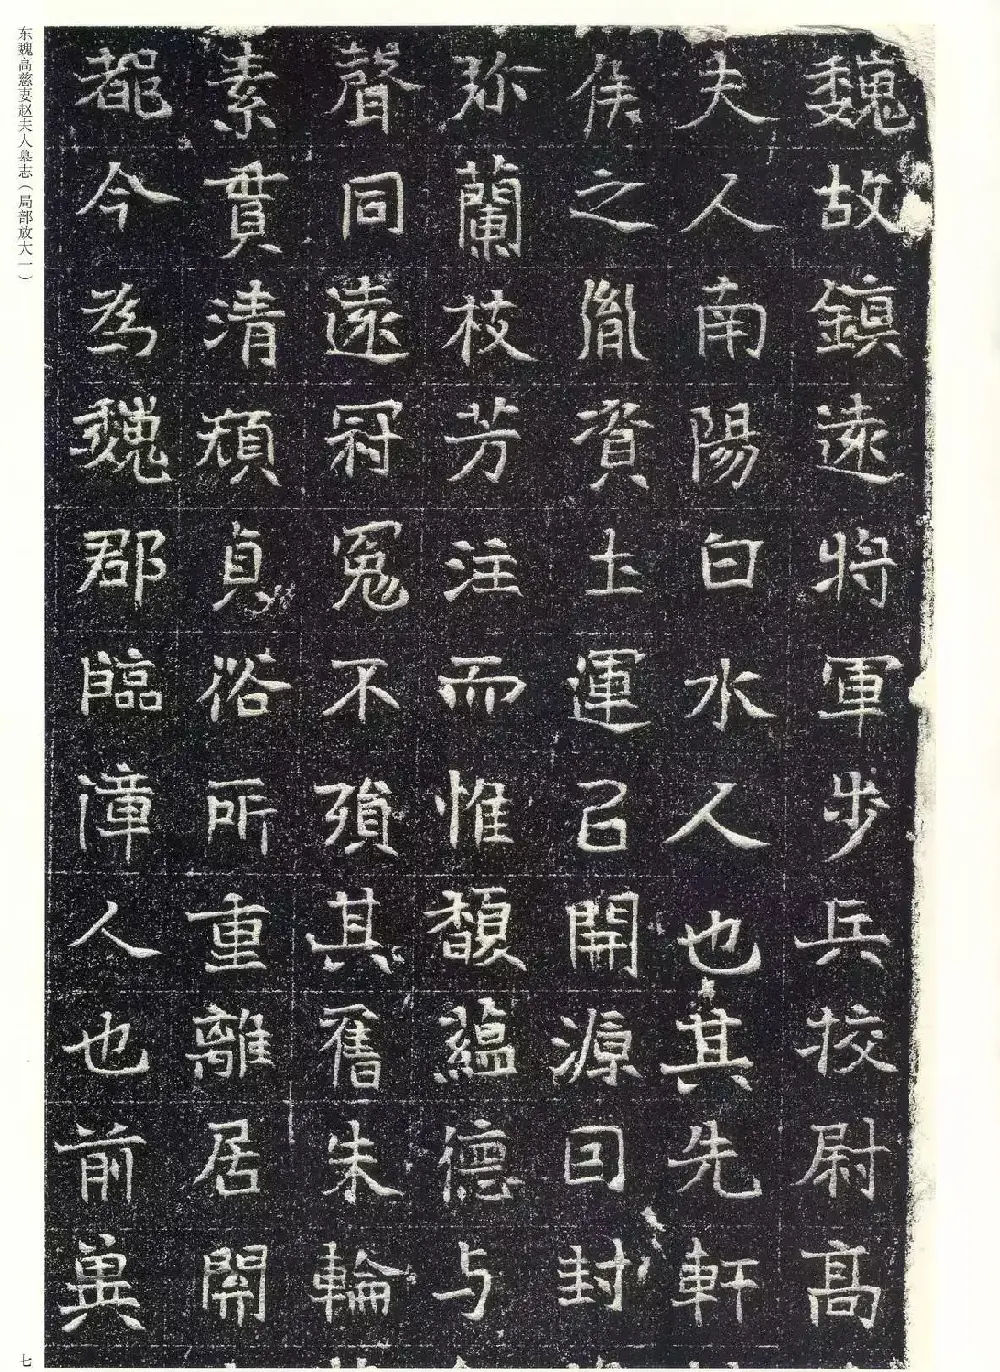 魏故鎮遠將軍步兵挍尉高
夫人南陽白水人也其先軒
侯之胤資土運已開源曰封
珎蘭枝芳注而惟馥蘊德与
聲同遠冠冕不殞其舊朱輪
素貫清頑貞俗所重離居開
鄴今為魏郡臨漳人也前兾
东魏高慈妻赵夫人墓志（局部放大一）
七